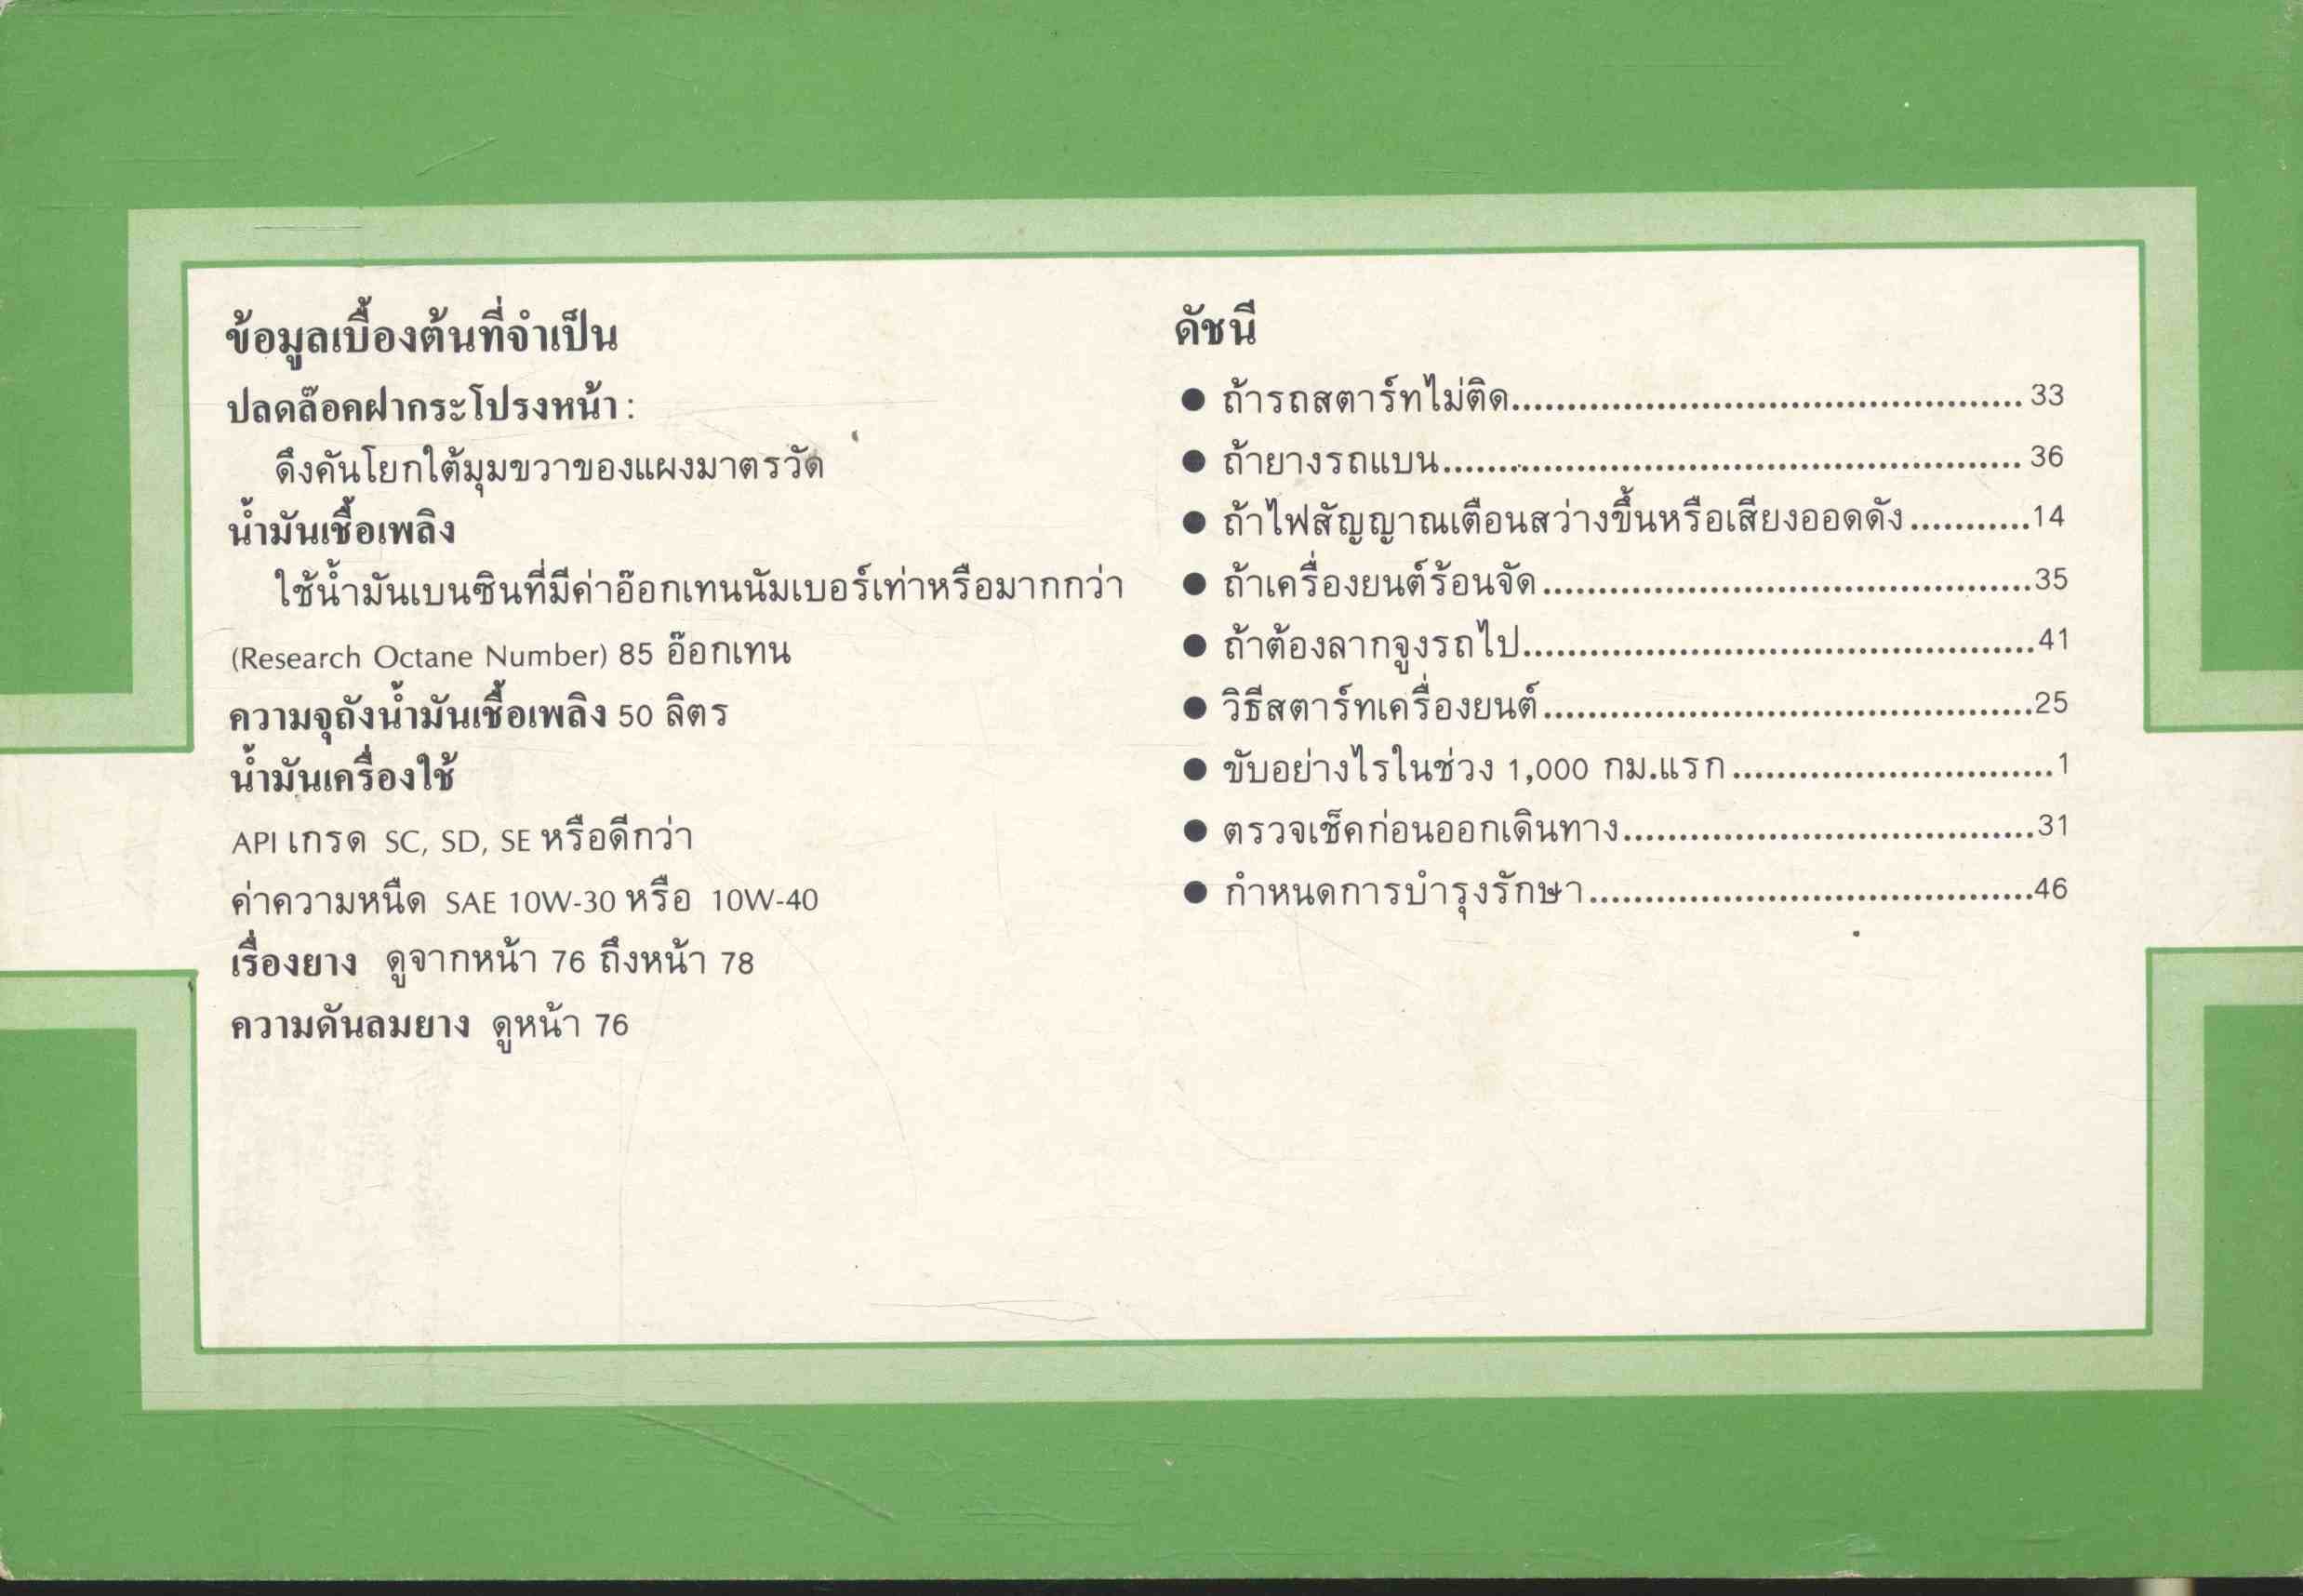 ข้อมูลเบื้องต้นที่จำเป็น
ปลดล๊อคฝากระโปรงหน้า :
ดึงคันโยกใต้มุมขวาของแผงมาตรวัด
น้ำมันเชื้อเพลิง
ใช้น้ำมันเบนซินที่มีค่าอ๊อกเทนนัมเบอร์เท่าหรือมากกว่า
(Research Octane Number) 85 อ๊อกเทน
ความจุถังน้ำมันเชื้อเพลิง 50 ลิตร
น้ำมันเครื่องใช้
API เกรด SC, SD, SE หรือดีกว่า
ค่าความหนืด SAE 10W-30 หรือ 10W-40
เรื่องยาง ดูจากหน้า 76 ถึงหน้า 78
ความดันลมยาง ดูหน้า 76
ดัชนี
● ถ้ารถสตาร์ทไม่ติด.............................................. 33
● ถ้ายางรถแบน.................................................... 36
● ถ้าไฟสัญญาณเตือนสว่างขึ้นหรือเสียงออดดัง...........14
● ถ้าเครื่องยนต์ร้อนจัด............................................35
● ถ้าต้องลากจูงรถไป..............................................41
● วิธีสตาร์ทเครื่องยนต์............................................25
● ขับอย่างไรในช่วง 1,000 กม.แรก.............................1
● ตรวจเช็คก่อนออกเดินทาง.....................................31
● กำหนดการบำรุงรักษา........................................46